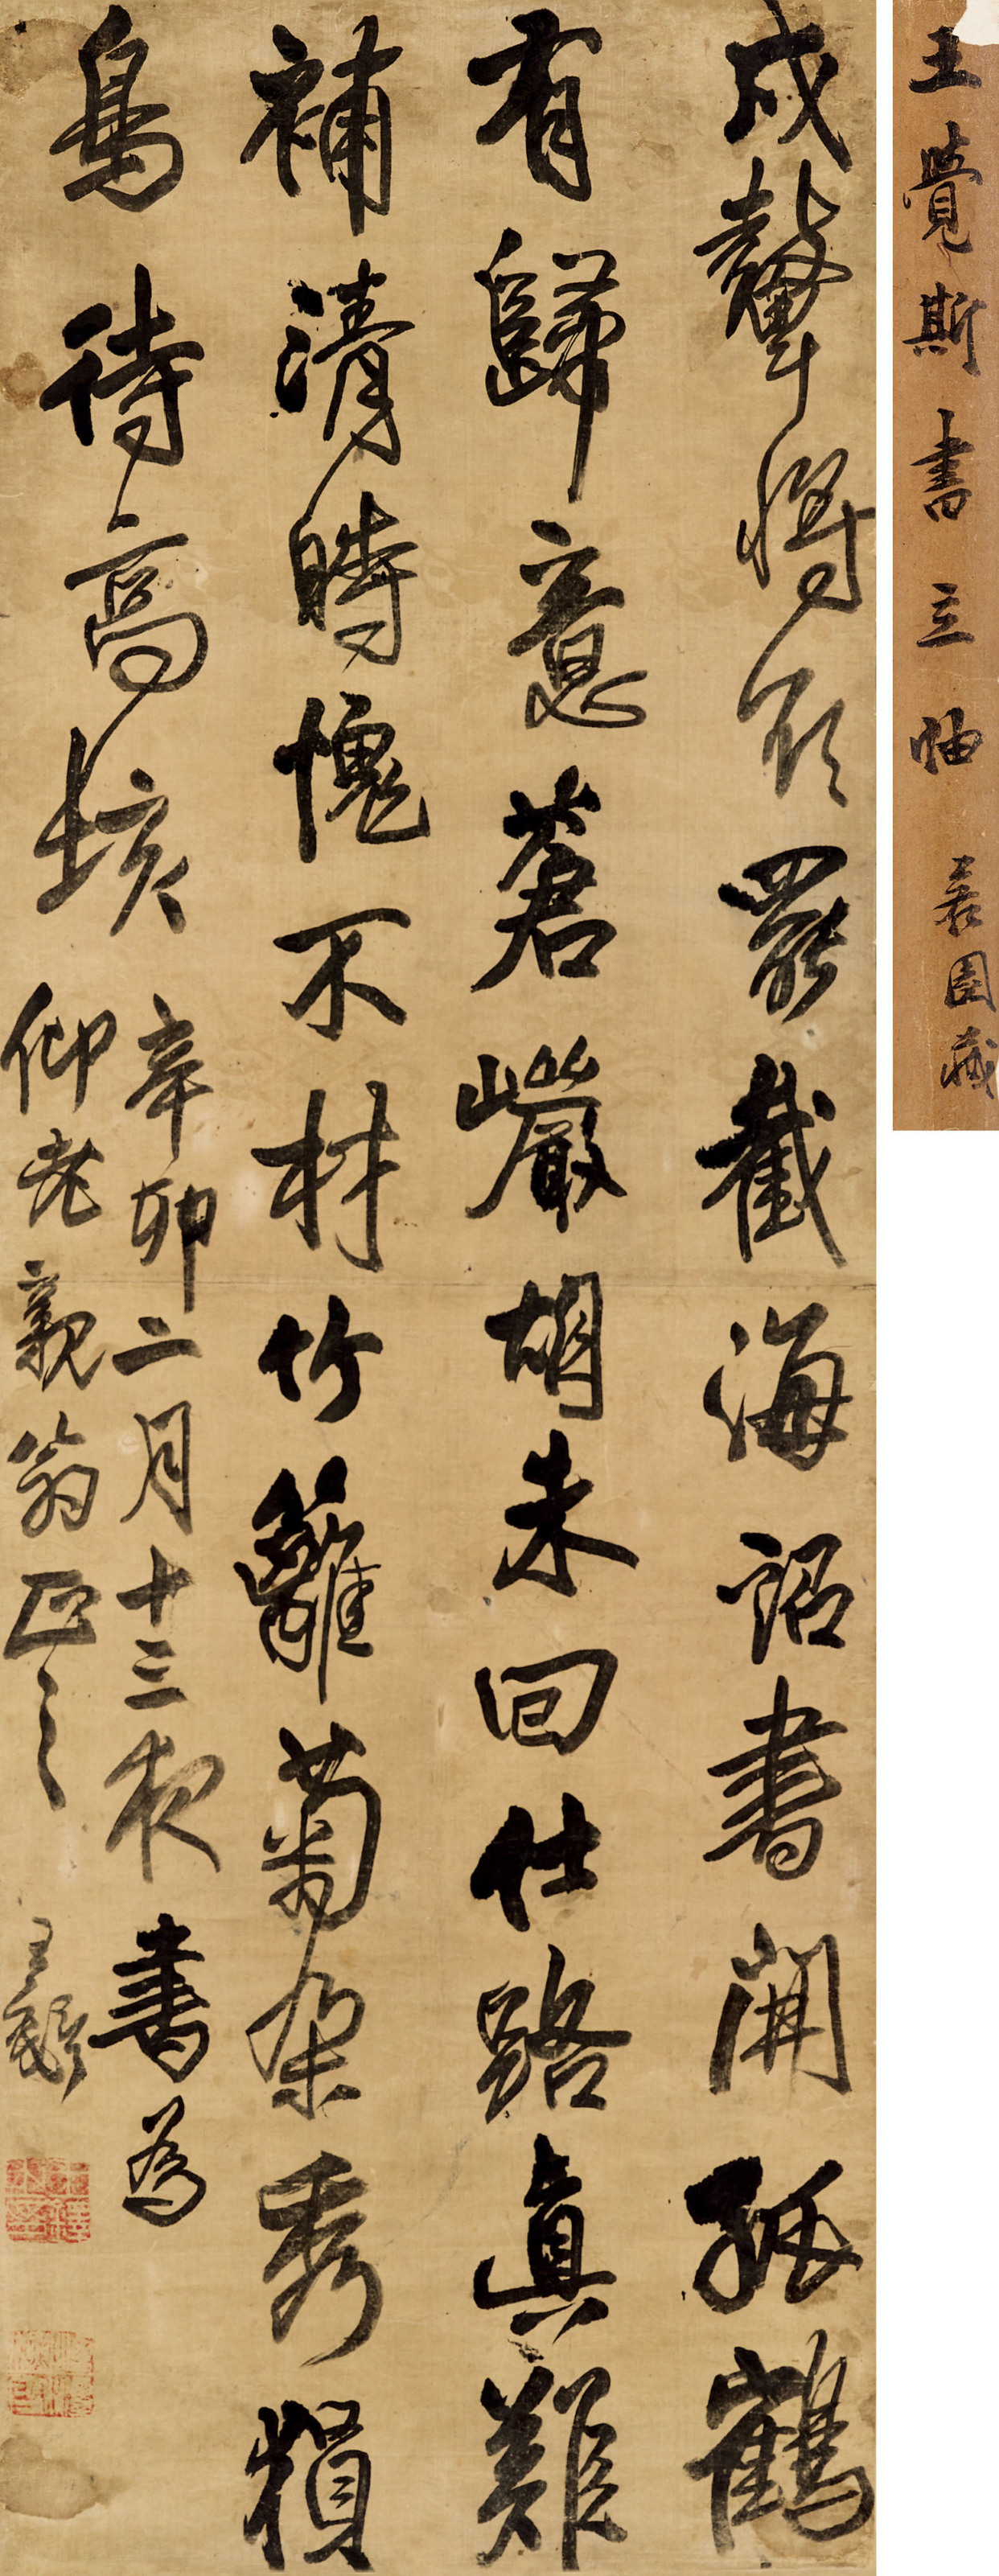 王覺斯書立軸 袁園藏
戍鼙將欲罷截海詔書開孤鶴
有歸意蒼巖胡未回仕路真難
補清時愧不材竹籬菊朵秀
鳥待高
辛卯二月十三夜書為
仰老親翁正之 王鐸